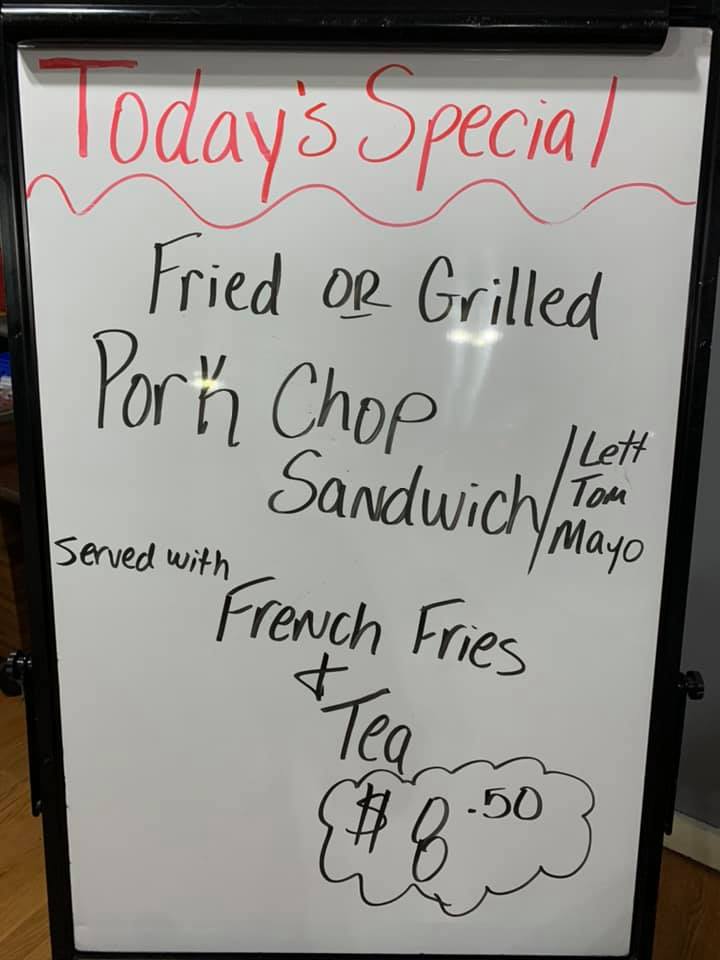 Today's Special
Fried OR Grilled
Pork Chop
Sandwich/
Lett
Tom
Mayo
Served with
French Fries
&
Tea
$8.50